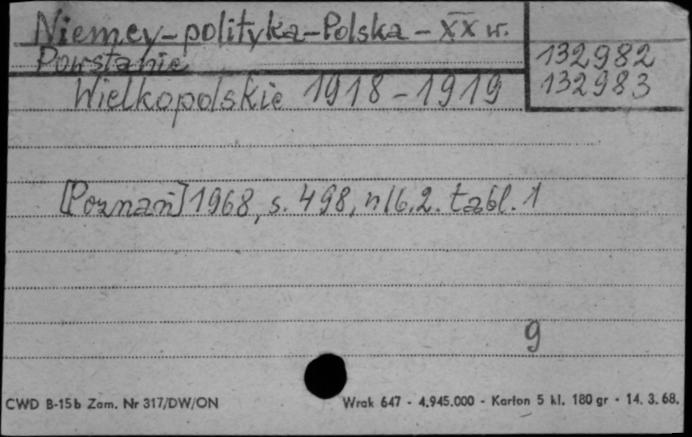 Niemcy-polityka-Polska - XX w.
132982
Powstanie
132983
Wielkopolskie 1918-1919
[Poznań] 1968, s. 498, nlb. 2. tabl. 1
9
CWD B-15b Zam. Nr 317/DW/ON
Wrak 647 - 4.945.000 - Karton 5 kl. 180 gr - 14. 3. 68.